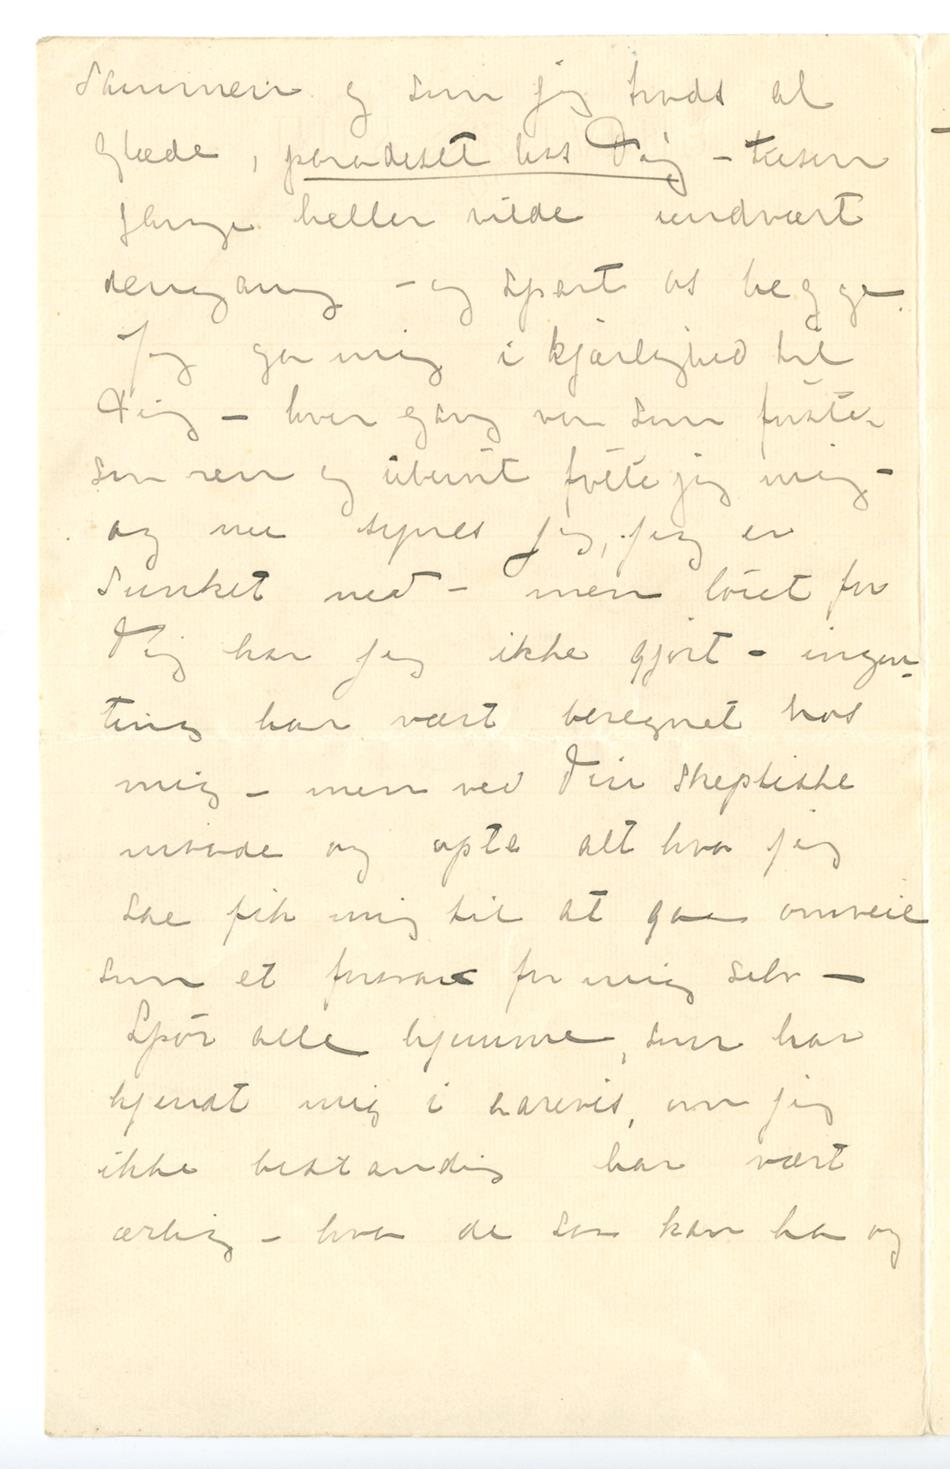 sammen og som jeg trods al
glæde, paradiset hos Dig – tusen
gange heller vilde undvært
dengang – og spart os begge.
Jeg ga mig i kjærlighed til
Dig – hver gang var som første –
som ren og uberørt følte jeg mig –
og nu synes jeg, jeg er
sunket ned – men løiet for
Dig har jeg ikke gjort – ingen-
ting har vært beregnet hos
mig – men ved Din skeptiske
maade og opta alt hva jeg
sae fik mig til at gaa omveie
som et forsvar for mig selv –
Spør alle hjemme, som har
kjendt mig i aarevis, om jeg
ikke bestandig har vært
ærlig – hva de saa kan ha og